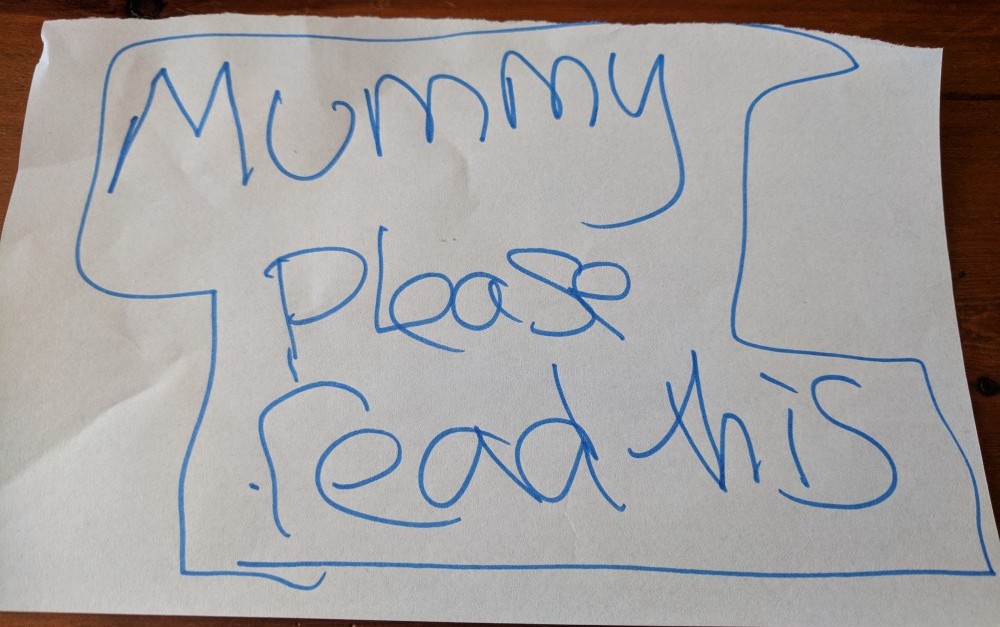 Mummy
please
read this